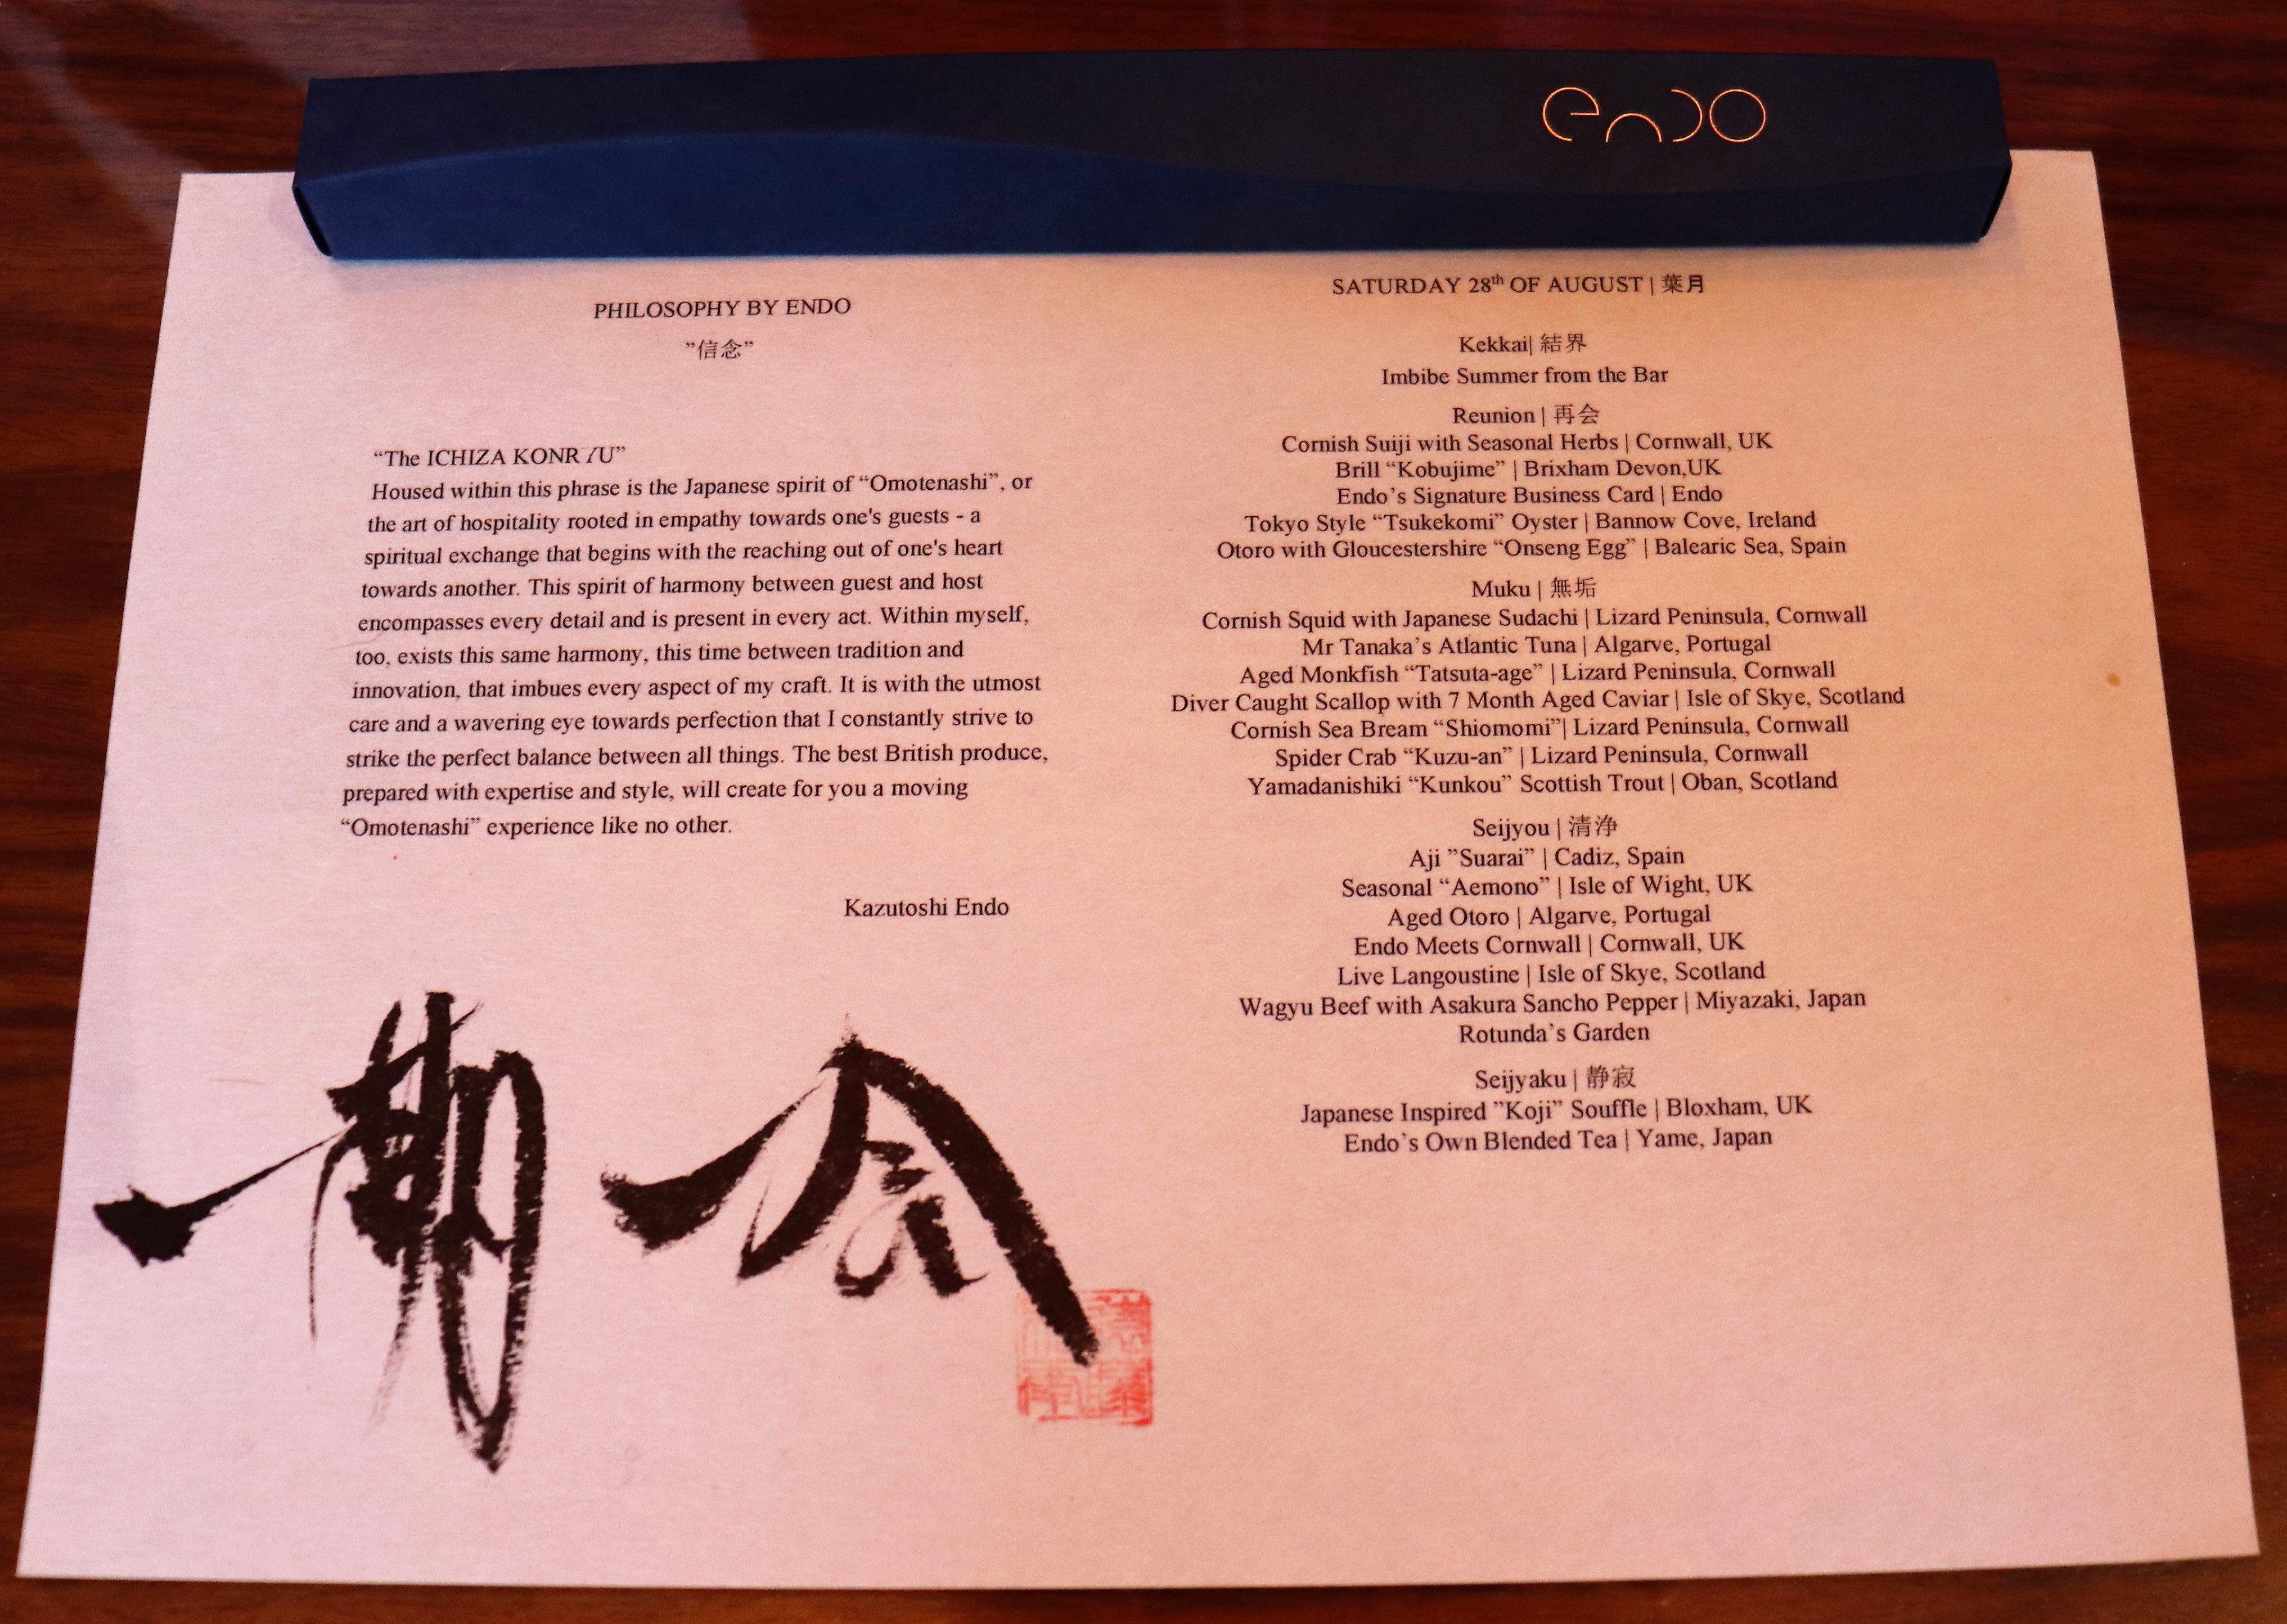 endo
PHILOSOPHY BY ENDO
”信念”
“The ICHIZA KONRYU”
Housed within this phrase is the Japanese spirit of “Omotenashi”, or
the art of hospitality rooted in empathy towards one's guests - a
spiritual exchange that begins with the reaching out of one's heart
towards another. This spirit of harmony between guest and host
encompasses every detail and is present in every act. Within myself,
too, exists this same harmony, this time between tradition and
innovation, that imbues every aspect of my craft. It is with the utmost
care and a wavering eye towards perfection that I constantly strive to
strike the perfect balance between all things. The best British produce,
prepared with expertise and style, will create for you a moving
“Omotenashi” experience like no other.
Kazutoshi Endo
SATURDAY 28th OF AUGUST | 葉月
Kekkai| 結界
Imbibe Summer from the Bar
Reunion | 再会
Cornish Suiji with Seasonal Herbs | Cornwall, UK
Brill “Kobujime” | Brixham Devon,UK
Endo’s Signature Business Card | Endo
Tokyo Style “Tsukekomi” Oyster | Bannow Cove, Ireland
Otoro with Gloucestershire “Onseng Egg” | Balearic Sea, Spain
Muku | 無垢
Cornish Squid with Japanese Sudachi | Lizard Peninsula, Cornwall
Mr Tanaka’s Atlantic Tuna | Algarve, Portugal
Aged Monkfish “Tatsuta-age” | Lizard Peninsula, Cornwall
Diver Caught Scallop with 7 Month Aged Caviar | Isle of Skye, Scotland
Cornish Sea Bream “Shiomomi”| Lizard Peninsula, Cornwall
Spider Crab “Kuzu-an” | Lizard Peninsula, Cornwall
Yamadanishiki “Kunkou” Scottish Trout | Oban, Scotland
Seijyou | 清浄
Aji ”Suarai” | Cadiz, Spain
Seasonal “Aemono” | Isle of Wight, UK
Aged Otoro | Algarve, Portugal
Endo Meets Cornwall | Cornwall, UK
Live Langoustine | Isle of Skye, Scotland
Wagyu Beef with Asakura Sancho Pepper | Miyazaki, Japan
Rotunda’s Garden
Seijyaku | 静寂
Japanese Inspired ”Koji” Souffle | Bloxham, UK
Endo’s Own Blended Tea | Yame, Japan